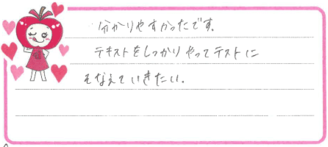 分かりやすかったです。
テキストをしっかりやってテストに
そなえていきたい。